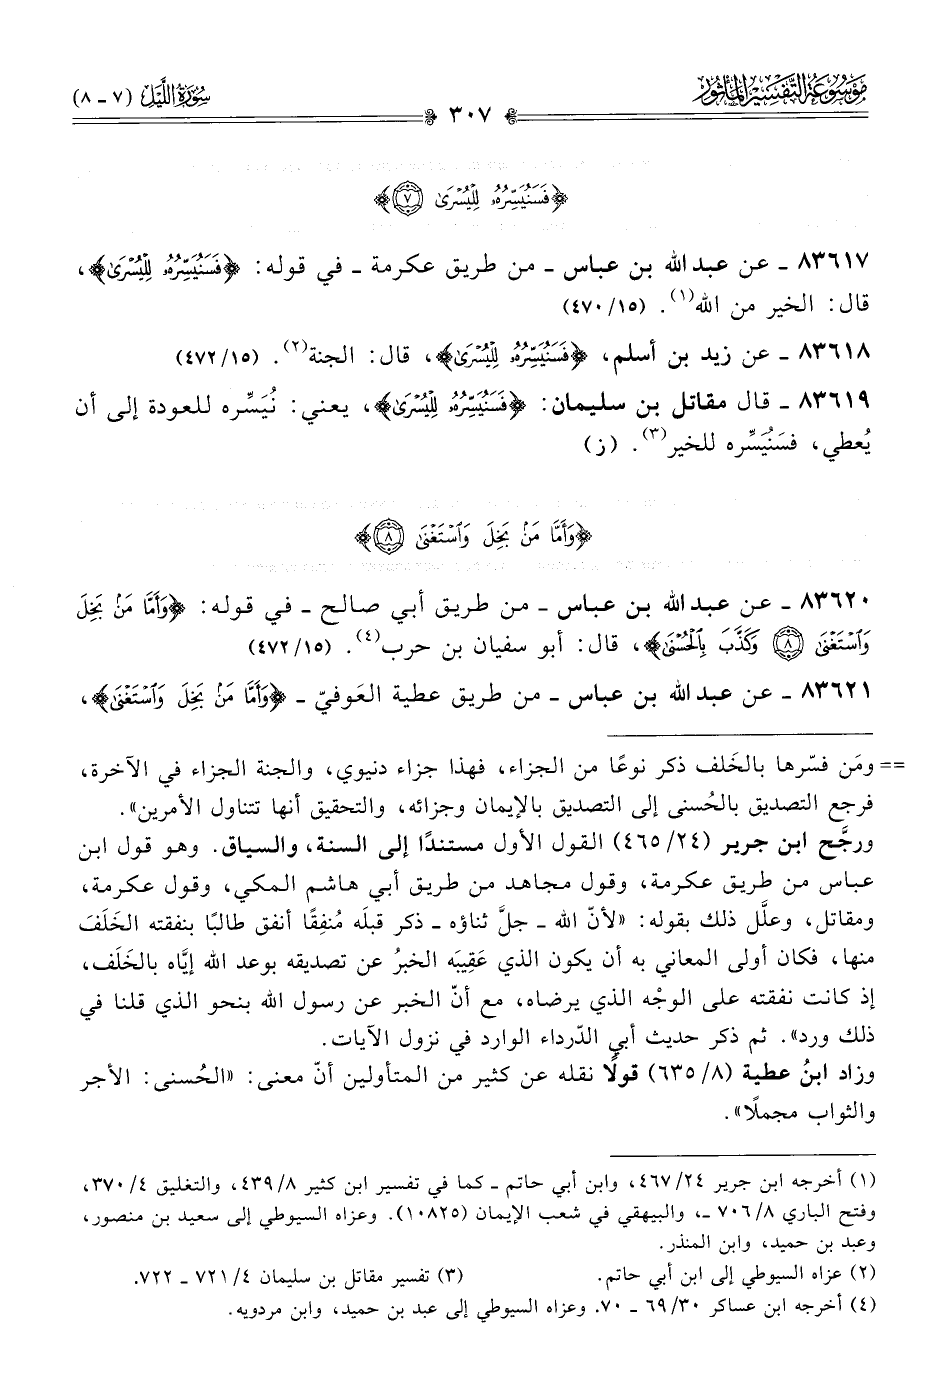 موسوعة التفسير المأثور
سورة الليل (٧ - ٨)
٣٠٧
﴿فَسَنُيَسِّرُهُۥ لِلۡيُسۡرَىٰ ۝٧﴾
٨٣٦١٧ - عن عبد الله بن عباس - من طريق عكرمة - في قوله: ﴿فَسَنُيَسِّرُهُۥ لِلۡيُسۡرَىٰ﴾،
قال: الخير من الله(١). (١٥/ ٤٧٠)
٨٣٦١٨ - عن زيد بن أسلم، ﴿فَسَنُيَسِّرُهُۥ لِلۡيُسۡرَىٰ﴾، قال: الجنة(٢). (١٥/ ٤٧٢)
٨٣٦١٩ - قال مقاتل بن سليمان: ﴿فَسَنُيَسِّرُهُۥ لِلۡيُسۡرَىٰ﴾، يعني: نُيَسِّره للعودة إلى أن
يُعطي، فسَنُيَسِّره للخير(٣). (ز)
﴿وَأَمَّا مَنۢ بَخِلَ وَٱسۡتَغۡنَىٰ ۝٨﴾
٨٣٦٢٠ - عن عبد الله بن عباس - من طريق أبي صالح - في قوله: ﴿وَأَمَّا مَنۢ بَخِلَ
وَٱسۡتَغۡنَىٰ ۝٨ وَكَذَّبَ بِٱلۡحُسۡنَىٰ﴾، قال: أبو سفيان بن حرب(٤). (١٥/ ٤٧٢)
٨٣٦٢١ - عن عبد الله بن عباس - من طريق عطية العَوفيّ - ﴿وَأَمَّا مَنۢ بَخِلَ وَٱسۡتَغۡنَىٰ﴾،
== ومَن فسّرها بالخَلف ذكر نوعًا من الجزاء، فهذا جزاء دنيوي، والجنة الجزاء في الآخرة،
فرجع التصديق بالحُسنى إلى التصديق بالإيمان وجزائه، والتحقيق أنها تتناول الأمرين».
ورجَّح ابن جرير (٢٤/ ٤٦٥) القول الأول مستندًا إلى السنة، والسياق. وهو قول ابن
عباس من طريق عكرمة، وقول مجاهد من طريق أبي هاشم المكي، وقول عكرمة،
ومقاتل، وعلَّل ذلك بقوله: «لأنّ الله - جلَّ ثناؤه - ذكر قبلَه مُنفِقًا أنفق طالبًا بنفقته الخَلَفَ
منها، فكان أولى المعاني به أن يكون الذي عَقِيبَه الخبرُ عن تصديقه بوعد الله إيَّاه بالخَلَف،
إذ كانت نفقته على الوجْه الذي يرضاه، مع أنّ الخبر عن رسول الله بنحو الذي قلنا في
ذلك ورد». ثم ذكر حديث أبي الدّرداء الوارد في نزول الآيات.
وزاد ابنُ عطية (٨/ ٦٣٥) قولًا نقله عن كثير من المتأولين أنّ معنى: «الحُسنى: الأجر
والثواب مجملًا».
(١) أخرجه ابن جرير ٢٤/ ٤٦٧، وابن أبي حاتم - كما في تفسير ابن كثير ٨/ ٤٣٩، والتغليق ٤/ ٣٧٠،
وفتح الباري ٨/ ٧٠٦ -، والبيهقي في شعب الإيمان (١٠٨٢٥). وعزاه السيوطي إلى سعيد بن منصور،
وعبد بن حميد، وابن المنذر.
(٢) عزاه السيوطي إلى ابن أبي حاتم.
(٣) تفسير مقاتل بن سليمان ٤/ ٧٢١ - ٧٢٢.
(٤) أخرجه ابن عساكر ٣٠/ ٦٩ - ٧٠. وعزاه السيوطي إلى عبد بن حميد، وابن مردويه.